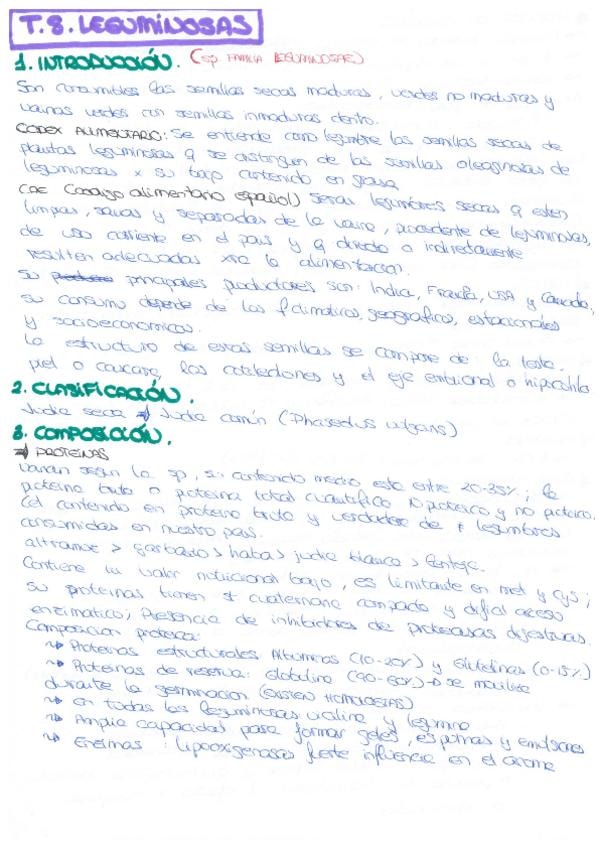 T.8. LEGUMINOSAS
1. INTRODUCCIÓN. (sp. FAMILIA LEGUMINOSAE)
Son consumibles las semillas secas maduras, verdes no maduras y
vainas verdes con semillas inmaduras dentro.
CODEX ALIMENTARIO: Se entiende como legumbre las semillas secas de
plantas leguminosas q se distinguen de las semillas oleaginosas de
leguminosas x su bajo contenido en grasa
CAE (Codigo alimentario español) Seras legumbres secas q esten
limpias, sanas y separadas de la vaina, procedente de leguminosas,
de uso corriente en el pais y q directa o indirectamente
resulten adecuadas xra la alimentacion.
Su principales productores son: India, Francia, USA y Canada,
su consumo depende de los f climaticos, geograficos, estacionales
y socioeconomicos.
La estructura de estas semillas se compone de: la testa,
piel o cascara, los cotiledones y el eje embrional o hipocotilo
2. CLASIFICACIÓN.
Judia seca ⇒ Judia común (Phaseolus vulgaris)
3. COMPOSICIÓN.
⇒ PROTEINAS
Varian segun la sp, su contenido medio esta entre 20-35%; la
proteina bruta o proteina total cuantifico N proteico y no proteico.
(el contenido en proteina bruta y verdadera de ≠ legumbres
consumidas en nuestro pais.
altramuz > garbanzo > habas > judia blanca > lenteja.
Contiene un valor nutricional bajo, es limitante en met y cys;
su proteinas tienen st cuaternaria compacta y dificil acceso
enzimatico; Presencia de inhibidores de proteasas digestivas.
Composicion proteica:
↝ Proteinas estructurales Albuminas (10-20%) y Glutelinas (0-15%)
↝ Proteinas de reserva: Globulina (90-60%) → se moviliza
durante la germinacion (EXISTEN HOMOLOGIAS)
↝ en todas las leguminosas vicilina y legumina
↝ Amplia capacidas para formar geles, espumas y emulsiones
↝ Enzimas: Lipooxigenasas fuerte influencia en el aroma